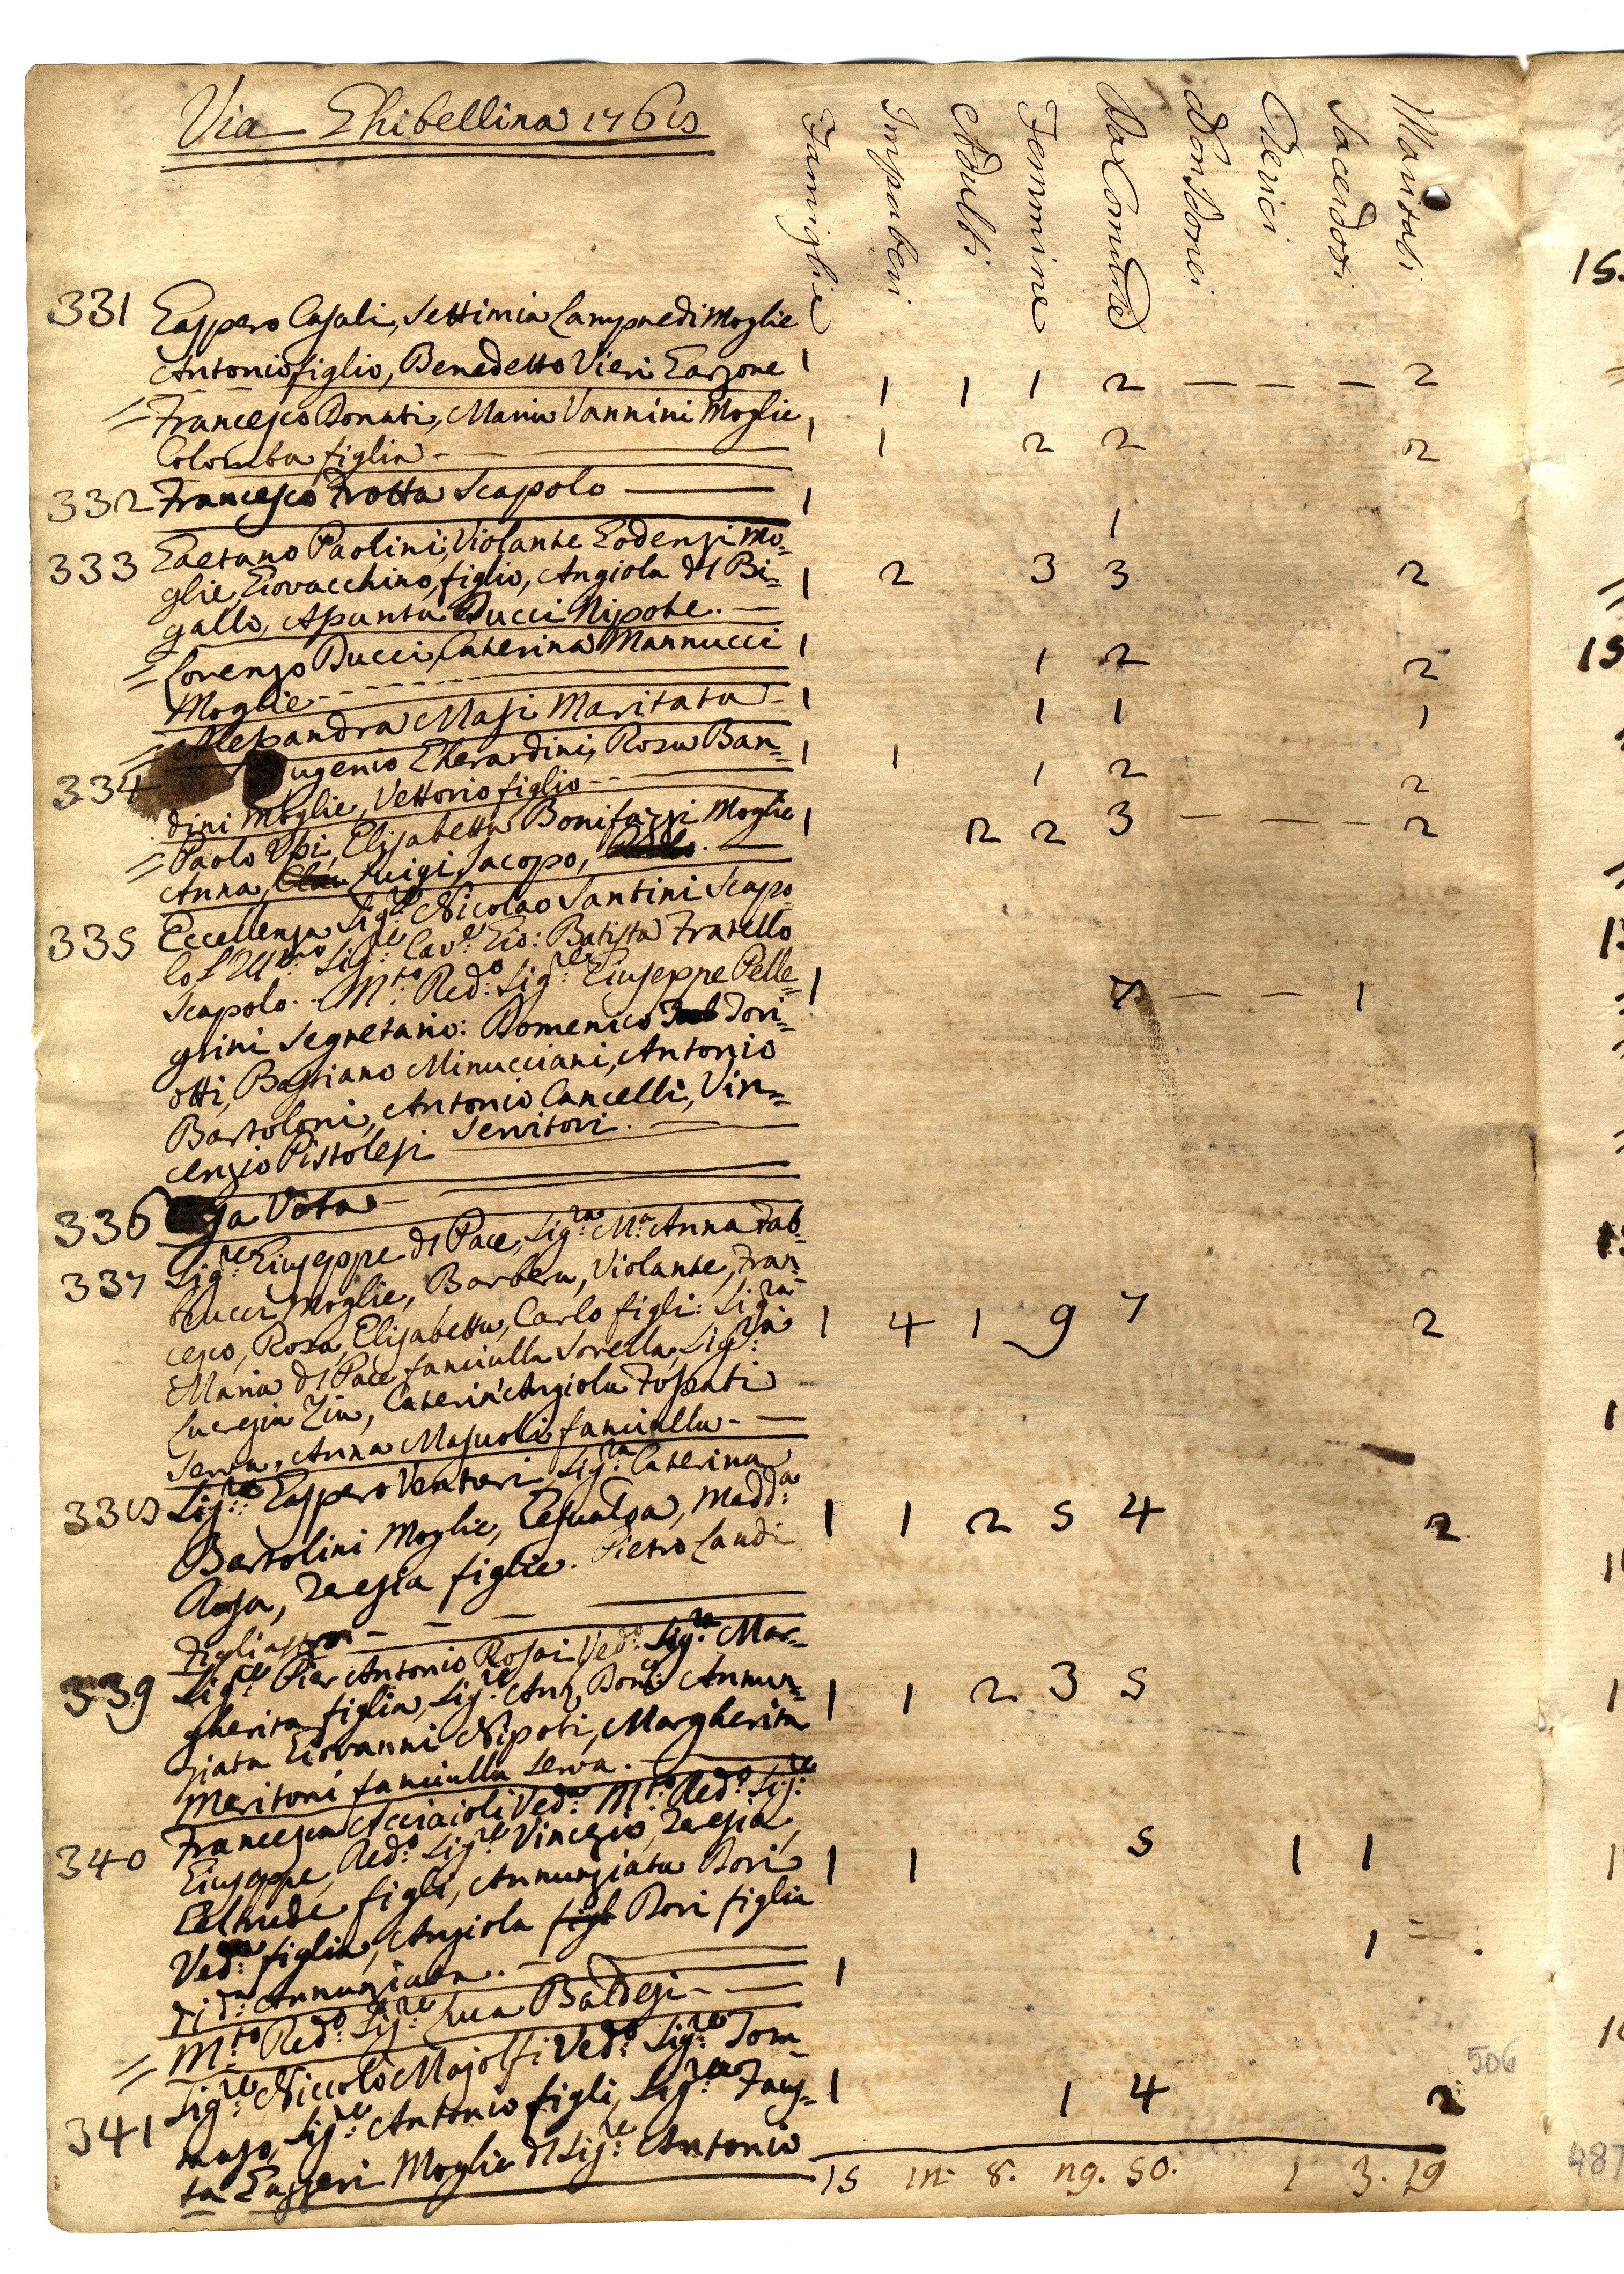 Via Ghibellina 1768
Famiglie Impuberi Adulti Femmine Da Comunione Non Idonei Cherici Sacerdoti Maritati
331 Gaspero Casali, Settimia Lampredi Moglie
Antonio figlio, Benedetto Vieri Garzone 1 1 1 1 2 — — — 2
= Francesco Donati, Maria Vannini Moglie
Colomba figlia — 1 1 2 2 2
332 Francesco Trotta Scapolo — 1 1
333 Gaetano Paolini, Violante Godenzi Mo=
glie, Giovacchino, figlio, Angiola di Bi= 1 2 3 3 2
gallo, Assunta Ducci Nipote. —
= Lorenzo Ducci, Caterina Mannucci 1 1 2 2
Moglie
= Alessandra Masi Maritata — 1 1 1 1
334 Eugenio Gherardini, Rosa Ban= 1 1 1 2 2
dini Moglie, Vettorio figlio —
= Paolo Ussi, Elisabetta Bonifazzi Moglie 1 2 2 3 — — — 2
Anna, Luigi, Jacopo, —
335 Eccellenza Sig.re Nicolao Santini Scapo
lo L'Ill.mo Sig.re Cav.re Gio: Batista Fratello
Scapolo. M.to Red.o Sig.re Giuseppe Pelle= 1 7 — — 1
grini Segretario: Domenico Tori=
otti, Bastiano Minucciani, Antonio
Bartoloni, Antonio Cancelli, Vin=
cenzio Pistolesi Servitori. —
336 Casa Vota —
337 Sig.re Giuseppe di Pace, Sig.ra M.a Anna Fab
brucci Moglie, Barbera, Violante, Fran=
cesco, Rosa, Elisabetta, Carlo figli: Sig.ra 1 4 1 9 7 2
Maria di Pace fanciulla Sorella, Sig.ra
Lucrezia Zia, Caterin'Angiola Fossati
Serva, Anna Masuoli fanciulla —
338 Sig.re Gaspero Venturi, Sig.ra Caterina
Bartolini Moglie, Gesualda, Madd.a 1 1 2 5 4 2
Rosa, Teresia figlie. Pietro Landi
Figliastro —
339 Sig.re Pier Antonio Rosai Ved.o Sig.ra Mar=
gherita figlia, Sig.re Ant. Dom.co Annun= 1 1 2 3 5
ziata Giovanni Nipoti, Margherita
Meritoni fanciulla Serva. —
340 Francesca Acciaioli Ved.a M.to Red.o Sig.re
Giuseppe, Red.o Sig.re Vincezio, Teresia, 1 1 5 1 1
Geltrude figli, Annunziata Dori
Ved.a figlia, Angiola figl Dori figlia
di d.a Annunziata. —
= M.to Red.o Sig.re Luca Baldesi — 1 1
341 Sig.re Niccolò Majolfi Ved.o Sig.re Tom=
maso, Sig.re Antonio figli, Sig.ra Faus= 1 1 4 2
ta Gasperi Moglie di Sig.re Antonio
15 12. 8. 29. 50. 1 3. 19
506
487